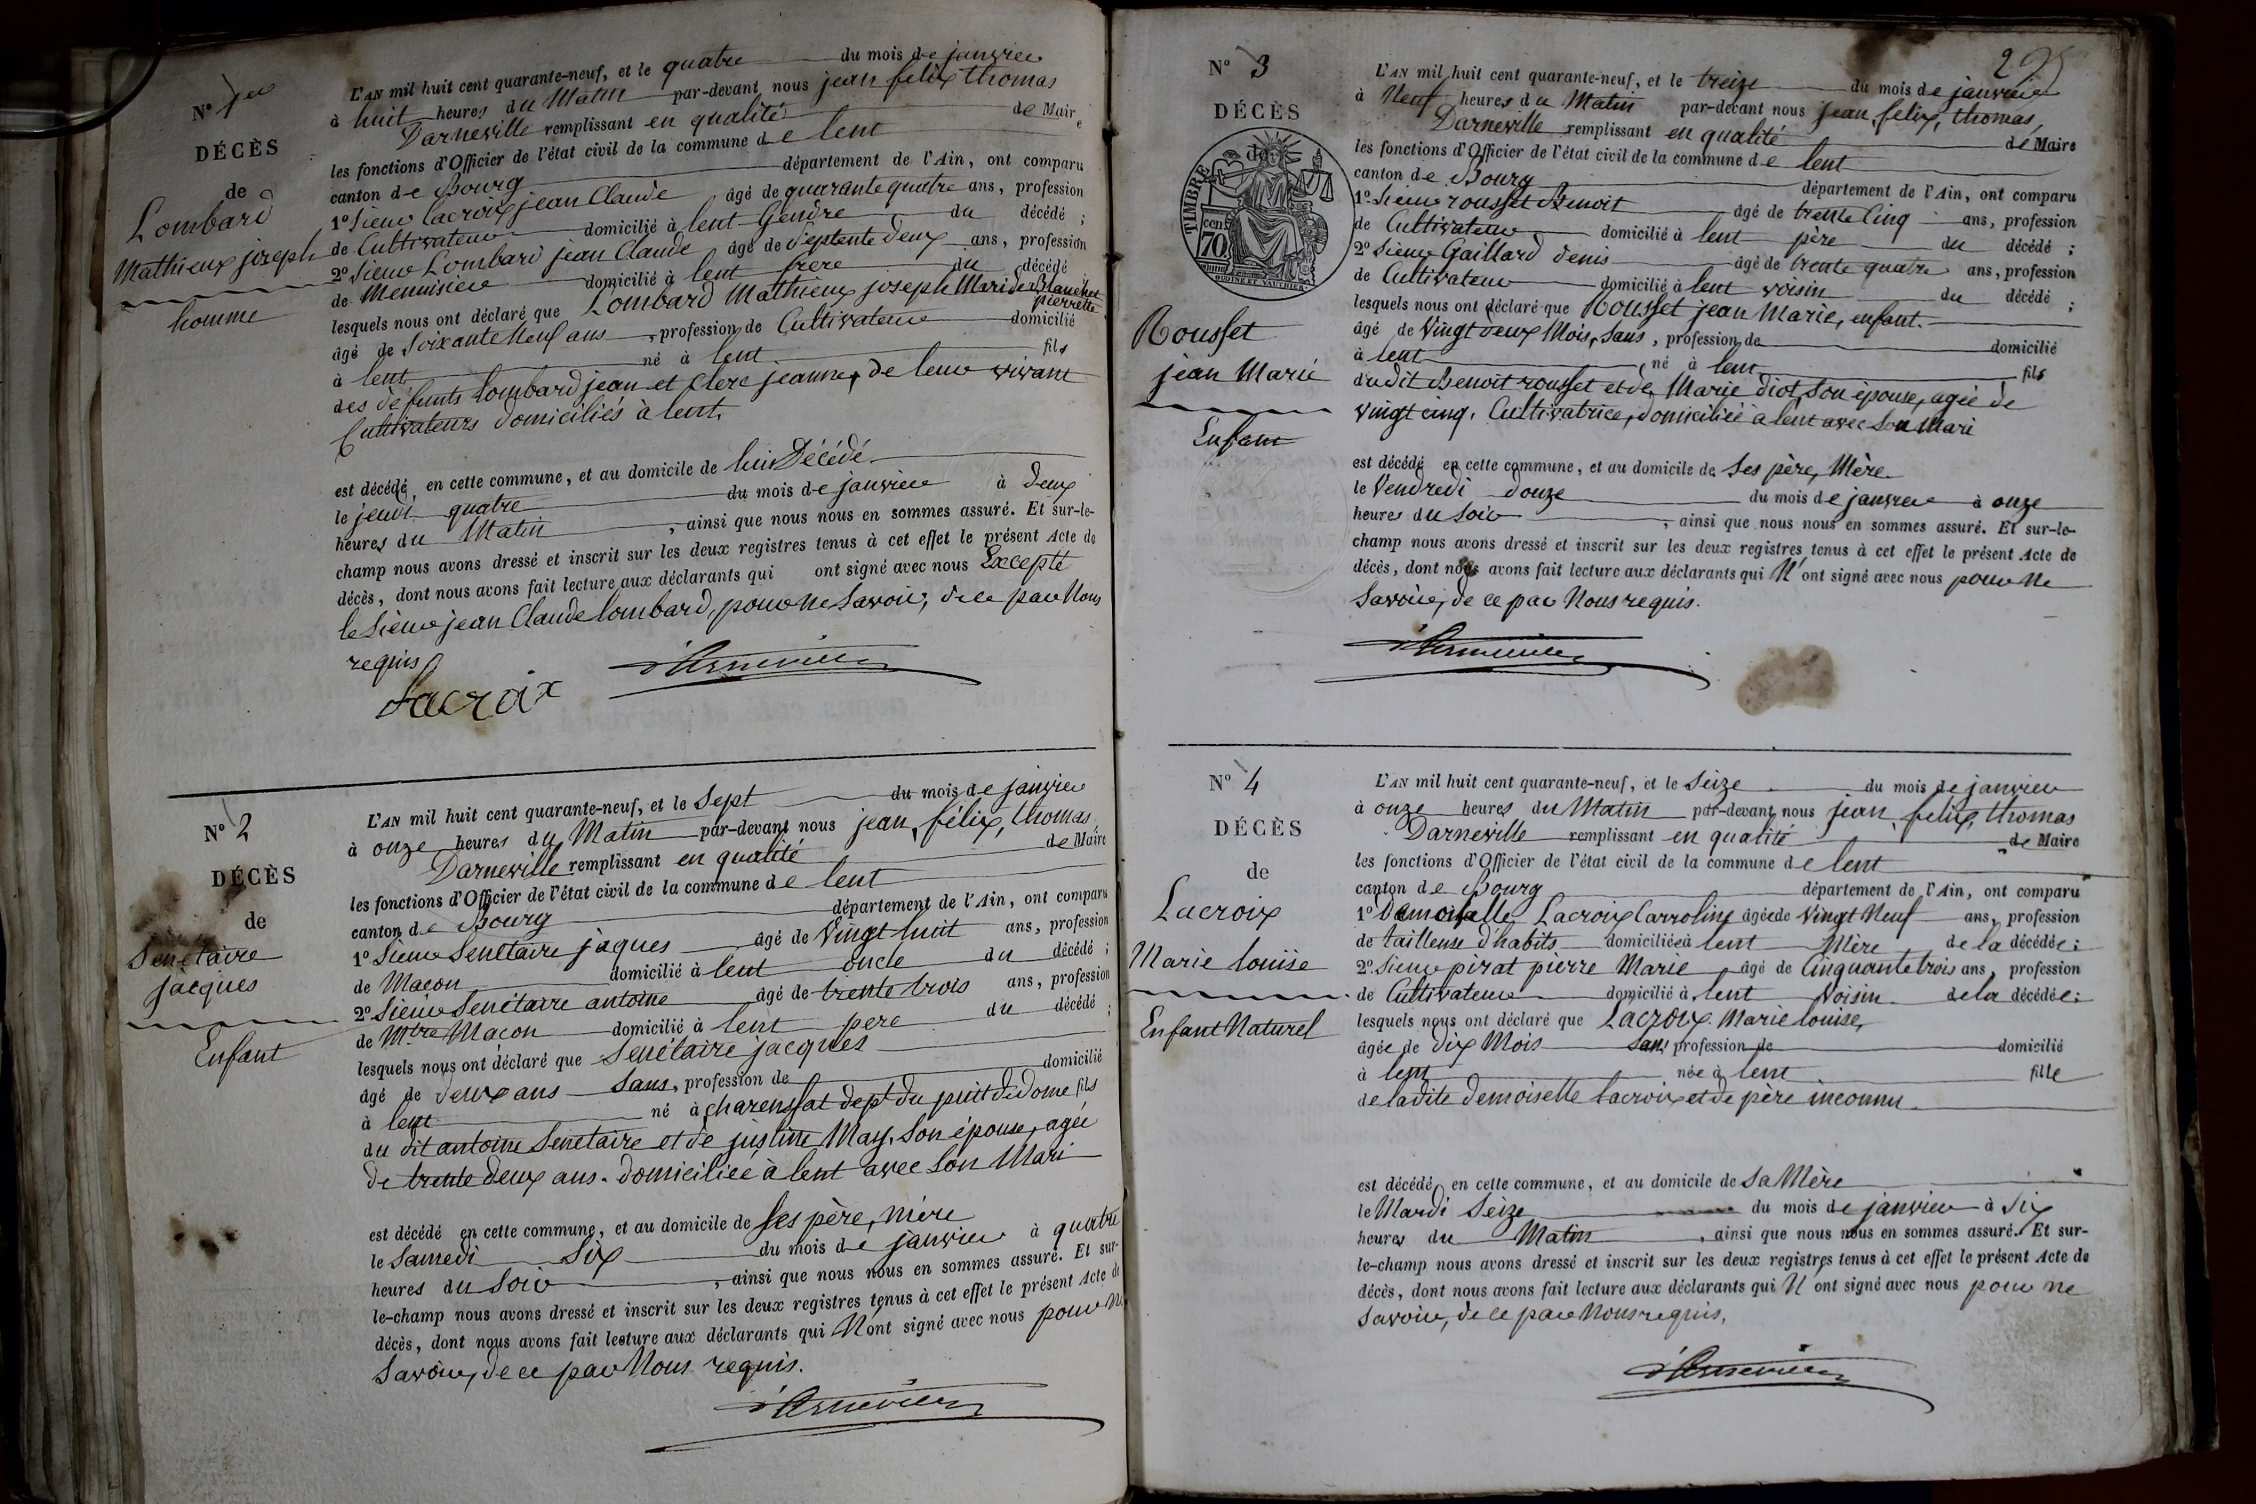 N° 1er
DÉCÈS
de
Lombard
Mathieux joseph
homme
L'AN mil huit cent quarante-neuf, et le quatre du mois de janvier
à huit heures du Matin par-devant nous jean félix thomas
Darneville remplissant en qualité de Maire
les fonctions d'Officier de l'état civil de la commune de lent
canton de Bourg département de l'Ain, ont comparu
1° Sieur Lacroix jean Claude âgé de quarante quatre ans, profession
de Cultivateur domicilié à lent Gendre du décédé ;
2° Sieur Lombard jean Claude âgé de Septente deux ans, profession
de Menuisier domicilié à lent frère du décédé
lesquels nous ont déclaré que Lombard Mathieux joseph Mari de Blanchet pierrette
âgé de Soixante Neuf ans, profession de Cultivateur domicilié
à lent né à lent fils
des défunts lombard jean et Clerc jeanne, de leur vivant
Cultivateurs domiciliés à lent.
est décédé en cette commune, et au domicile de lui Décédé
le jeudi quatre du mois de janvier à Deux
heures du Matin, ainsi que nous nous en sommes assuré. Et sur-le-
champ nous avons dressé et inscrit sur les deux registres tenus à cet effet le présent Acte de
décès, dont nous avons fait lecture aux déclarants qui ont signé avec nous Excepté
le Sieur jean Claude lombard, pour ne Savoir, de ce par Nous
requis
Lacroix
N° 2
DÉCÈS
de
Senétaire
jacques
Enfant
L'AN mil huit cent quarante-neuf, et le Sept du mois de janvier
à onze heures du Matin par-devant nous jean, félix, thomas,
Darneville remplissant en qualité de Maire
les fonctions d'Officier de l'état civil de la commune de lent
canton de Bourg département de l'Ain, ont comparu
1° Sieur Senétaire jaques âgé de Vingt huit ans, profession
de Macon domicilié à lent oncle du décédé ;
2° Sieur Senétaire antoine âgé de trente trois ans, profession
de Mtre Macon domicilié à lent pere du décédé ;
lesquels nous ont déclaré que Senétaire jacques
âgé de deux ans Sans, profession de domicilié
à lent né à charensat dept du puit de Dome fils
du dit antoine Senetaire et de justine May, Son épouse, agée
de trente deux ans. domiciliée à lent avec Son Mari
est décédé en cette commune, et au domicile de Ses père, mère
le Samedi Six du mois de janvier à quatre
heures du Soir, ainsi que nous nous en sommes assuré. Et sur-
le-champ nous avons dressé et inscrit sur les deux registres tenus à cet effet le présent Acte de
décès, dont nous avons fait lecture aux déclarants qui N'ont signé avec nous pour ne
Savoir, de ce par Nous requis.
295
N° 3
DÉCÈS
de
TIMBRE
70
Rousset
jean Marie
Enfant
L'AN mil huit cent quarante-neuf, et le treize du mois de janvier
à Neuf heures du Matin par-devant nous jean, félix, thomas,
Darneville remplissant en qualité de Maire
les fonctions d'Officier de l'état civil de la commune de lent
canton de Bourg département de l'Ain, ont comparu
1° Sieur rousset Benoit âgé de trente Cinq ans, profession
de Cultivateur domicilié à lent père du décédé ;
2° Sieur Gaillard denis âgé de trente quatre ans, profession
de Cultivateur domicilié à lent voisin du décédé ;
lesquels nous ont déclaré que Rousset jean Marie, enfant.
âgé de Vingt deux Mois, Sans, profession de domicilié
à lent né à lent fils
du dit Benoit rousset et de Marie diot Son épouse, agée de
vingt cinq. Cultivatrice, domiciliée à lent avec Son Mari
est décédé en cette commune, et au domicile de Ses père, Mère
le Vendredi douze du mois de janvier à onze
heures du Soir, ainsi que nous nous en sommes assuré. Et sur-le-
champ nous avons dressé et inscrit sur les deux registres tenus à cet effet le présent Acte de
décès, dont nous avons fait lecture aux déclarants qui N'ont signé avec nous pour ne
Savoir, de ce par Nous requis.
N° 4
DÉCÈS
de
Lacroix
Marie louise
Enfant Naturel
L'AN mil huit cent quarante-neuf, et le Seize du mois de janvier
à onze heures du Matin par-devant nous jean, félix, thomas
Darneville remplissant en qualité de Maire
les fonctions d'Officier de l'état civil de la commune de lent
canton de Bourg département de l'Ain, ont comparu
1° Demoiselle Lacroix Carroline âgée de Vingt Neuf ans, profession
de tailleuse d'habits domiciliée à lent Mère de la décédée ;
2° Sieur pirat pierre Marie âgé de Cinquante trois ans, profession
de Cultivateur domicilié à lent Voisin de la décédée ;
lesquels nous ont déclaré que Lacroix Marie louise,
âgée de dix Mois Sans profession de domicilié
à lent née à lent fille
de ladite demoiselle lacroix et de père inconnu
est décédé en cette commune, et au domicile de Sa Mère
le Mardi Seize du mois de janvier à Six
heures du Matin, ainsi que nous nous en sommes assuré. Et sur-
le-champ nous avons dressé et inscrit sur les deux registres tenus à cet effet le présent Acte de
décès, dont nous avons fait lecture aux déclarants qui N'ont signé avec nous pour ne
Savoir, de ce par Nous requis,